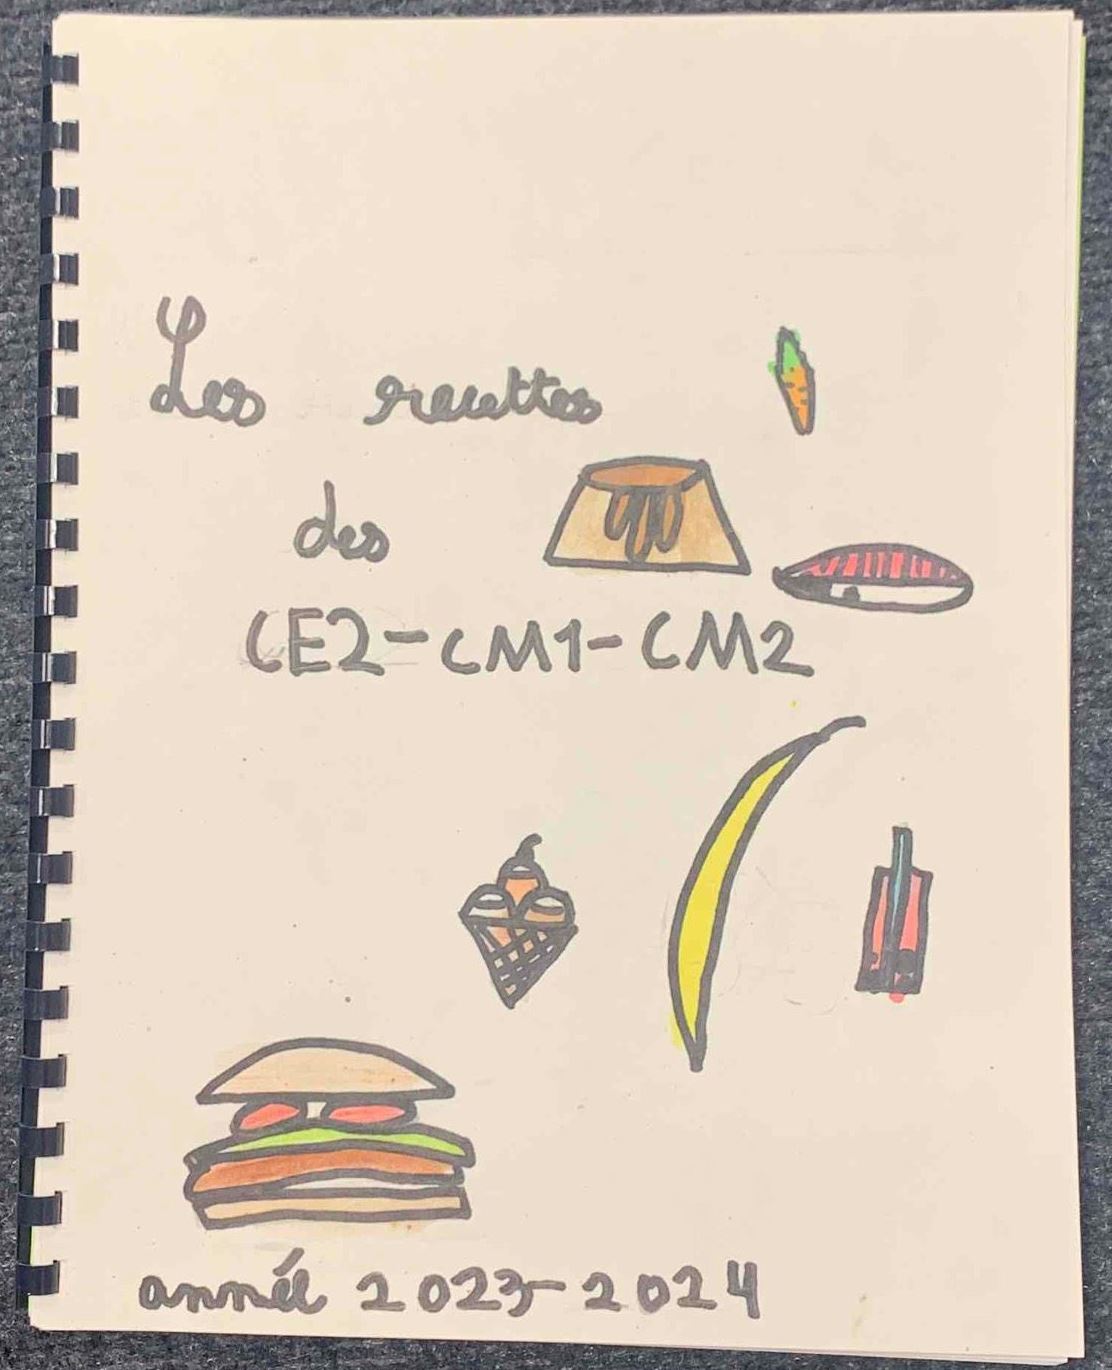 Les recettes
des
CE2-CM1-CM2
année 2023-2024